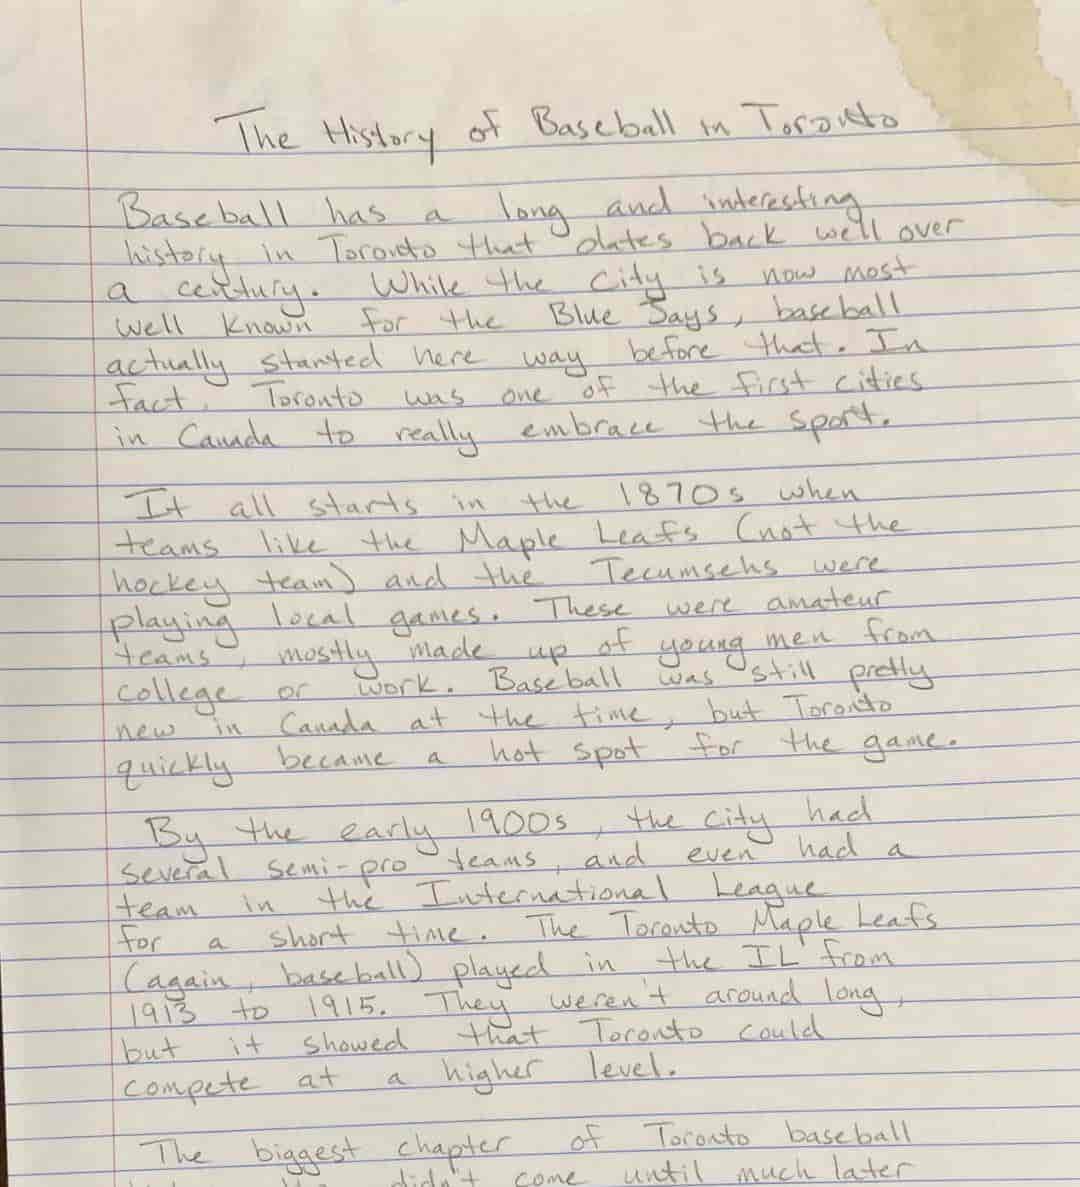 The History of Baseball in Toronto
Baseball has a long and interesting
history in Toronto that dates back well over
a century. While the city is now most
well known for the Blue Jays, baseball
actually started here way before that. In
fact, Toronto was one of the first cities
in Canada to really embrace the sport.
It all starts in the 1870s when
teams like the Maple Leafs (not the
hockey team) and the Tecumsehs were
playing local games. These were amateur
teams, mostly made up of young men from
college or work. Baseball was still pretty
new in Canada at the time, but Toronto
quickly became a hot spot for the game.
By the early 1900s, the city had
several semi-pro teams, and even had a
team in the International League
for a short time. The Toronto Maple Leafs
(again, baseball) played in the IL from
1913 to 1915. They weren't around long,
but it showed that Toronto could
compete at a higher level.
The biggest chapter of Toronto baseball
didn't come until much later